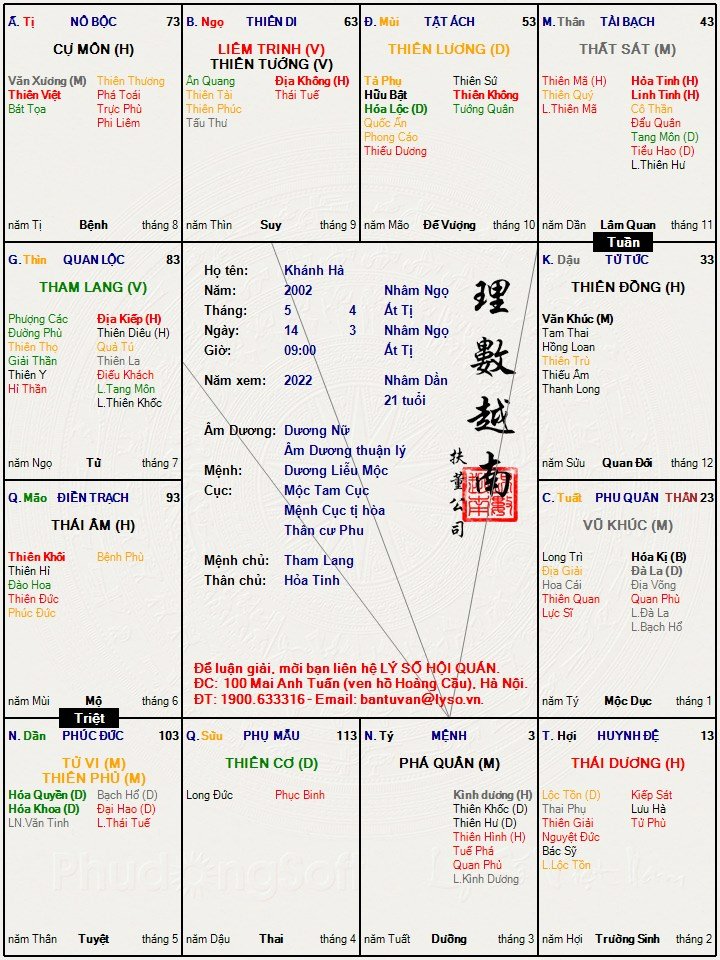 Ấ. Tị NÔ BỘC 73
CỰ MÔN (H)
Văn Xương (M) Thiên Thương
Thiên Việt Phá Toái
Bát Tọa Trực Phù
Phi Liêm
năm Tị Bệnh tháng 8
B. Ngọ THIÊN DI 63
LIÊM TRINH (V)
THIÊN TƯỚNG (V)
Ân Quang Địa Không (H)
Thiên Tài Thái Tuế
Thiên Phúc
Tấu Thư
năm Thìn Suy tháng 9
Đ. Mùi TẬT ÁCH 53
THIÊN LƯƠNG (D)
Tả Phụ Thiên Sứ
Hữu Bật Thiên Không
Hóa Lộc (D) Tướng Quân
Quốc Ấn
Phong Cáo
Thiếu Dương
năm Mão Đế Vượng tháng 10
M. Thân TÀI BẠCH 43
THẤT SÁT (M)
Thiên Mã (H) Hỏa Tinh (H)
Thiên Quý Linh Tinh (H)
L.Thiên Mã Cô Thần
Đẩu Quân
Tang Môn (D)
Tiểu Hao (D)
L.Thiên Hư
năm Dần Lâm Quan tháng 11
Tuần
G. Thìn QUAN LỘC 83
THAM LANG (V)
Phượng Các Địa Kiếp (H)
Đường Phù Thiên Diêu (H)
Thiên Thọ Quả Tú
Giải Thần Thiên La
Thiên Y Điếu Khách
Hỉ Thần L.Tang Môn
L.Thiên Khốc
năm Ngọ Tử tháng 7
Họ tên: Khánh Hà
Năm: 2002 Nhâm Ngọ
Tháng: 5 4 Ất Tị
Ngày: 14 3 Nhâm Ngọ
Giờ: 09:00 Ất Tị
Năm xem: 2022 Nhâm Dần
21 tuổi
Âm Dương: Dương Nữ
Âm Dương thuận lý
Mệnh: Dương Liễu Mộc
Cục: Mộc Tam Cục
Mệnh Cục tị hòa
Thân cư Phu
Mệnh chủ: Tham Lang
Thân chủ: Hỏa Tinh
理數越南
扶董公司
Để luận giải, mời bạn liên hệ LÝ SỐ HỘI QUÁN.
ĐC: 100 Mai Anh Tuấn (ven hồ Hoàng Cầu), Hà Nội.
ĐT: 1900.633316 - Email: bantuvan@lyso.vn.
K. Dậu TỬ TỨC 33
THIÊN ĐỒNG (H)
Văn Khúc (M)
Tam Thai
Hồng Loan
Thiên Trù
Thiếu Âm
Thanh Long
năm Sửu Quan Đới tháng 12
Q. Mão ĐIỀN TRẠCH 93
THÁI ÂM (H)
Thiên Khôi Bệnh Phù
Thiên Hỉ
Đào Hoa
Thiên Đức
Phúc Đức
năm Mùi Mộ tháng 6
Triệt
C. Tuất PHU QUÂN THÂN 23
VŨ KHÚC (M)
Long Trì Hóa Kị (B)
Địa Giải Đà La (D)
Hoa Cái Địa Võng
Thiên Quan Quan Phù
Lực Sĩ L.Đà La
L.Bạch Hổ
năm Tý Mộc Dục tháng 1
N. Dần PHÚC ĐỨC 103
TỬ VI (M)
THIÊN PHỦ (M)
Hóa Quyền (D) Bạch Hổ (D)
Hóa Khoa (D) Đại Hao (D)
LN.Văn Tinh L.Thái Tuế
năm Thân Tuyệt tháng 5
Q. Sửu PHỤ MẪU 113
THIÊN CƠ (D)
Long Đức Phục Binh
năm Dậu Thai tháng 4
N. Tý MỆNH 3
PHÁ QUÂN (M)
Kình dương (H)
Thiên Khốc (D)
Thiên Hư (D)
Thiên Hình (H)
Tuế Phá
Quan Phủ
L.Kình Dương
năm Tuất Dưỡng tháng 3
T. Hợi HUYNH ĐỆ 13
THÁI DƯƠNG (H)
Lộc Tồn (D) Kiếp Sát
Thai Phụ Lưu Hà
Thiên Giải Tử Phù
Nguyệt Đức
Bác Sỹ
L.Lộc Tồn
năm Hợi Trường Sinh tháng 2